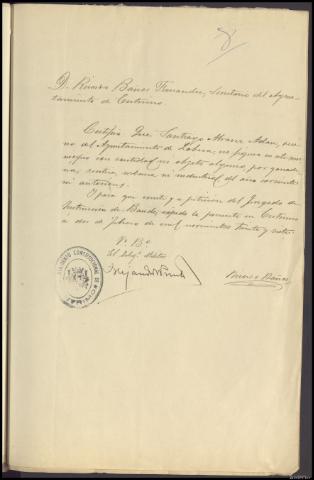 8
D. Ricardo Bances Fernandez, Secretario del Ayun-
tamiento de Entrimo.
Certifico: Que Santiago Alvarez Adan, veci-
no del Ayuntamiento de Lobera, no figura en ala
con cantidad ni objeto alguno, por
rustica, urbana ni industrial del año corriente
ni anteriores.
Y para que conste y a petición del Juzgado de
Instrucción de Bande, expido la presente en Entrimo
a dos de Febrero de mil novecientos treinta y siete
Vº Bº
El
Ricardo Bances
AYUNTAMIENTO CONSTITUCIONAL DE ENTRIMO